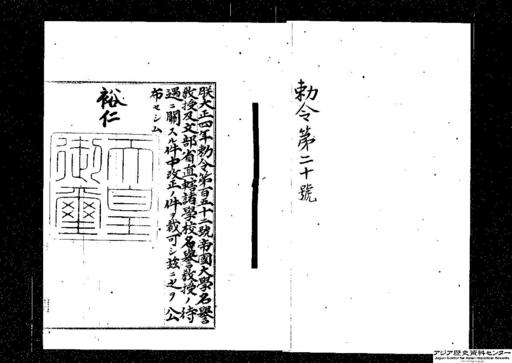 勅令第二十號
朕大正四年勅令第百五十二號帝國大學名譽
敎授及文部省直轄諸學校名譽敎授ノ待
遇ニ關スル件中改正ノ件ヲ裁可シ茲ニ之ヲ公
布セシム
裕仁
天皇
御璽
アジア歴史資料センター
Japan Center for Asian Historical Records